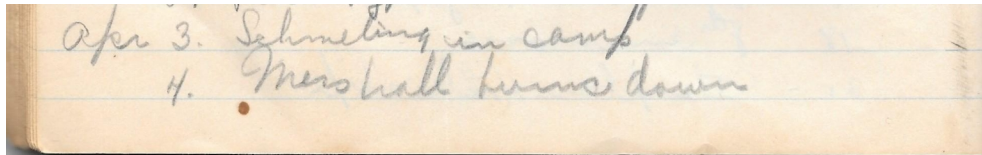 Apr 3. Schmeling in camp
4. Mershall turns down